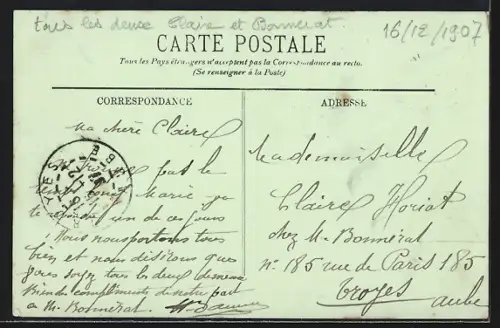 tous les deuse Claire et Bonnérat
16/12/1907
CARTE POSTALE
Tous les Pays étrangers n'acceptent pas la Correspondance au recto.
(Se renseigner à la Poste)
CORRESPONDANCE
Ma chère Claire
pas le
Marie
un de ces jours
Nous nous portons tous
bien et nous désirons que
soyez tous les deux de meme
bien des compliments de notre part
à M. Bonnérat
ADRESSE
Mademoiselle
Claire Horiot
chez M. Bonnérat
N° 185 rue de Paris 185
Troyes
Aube